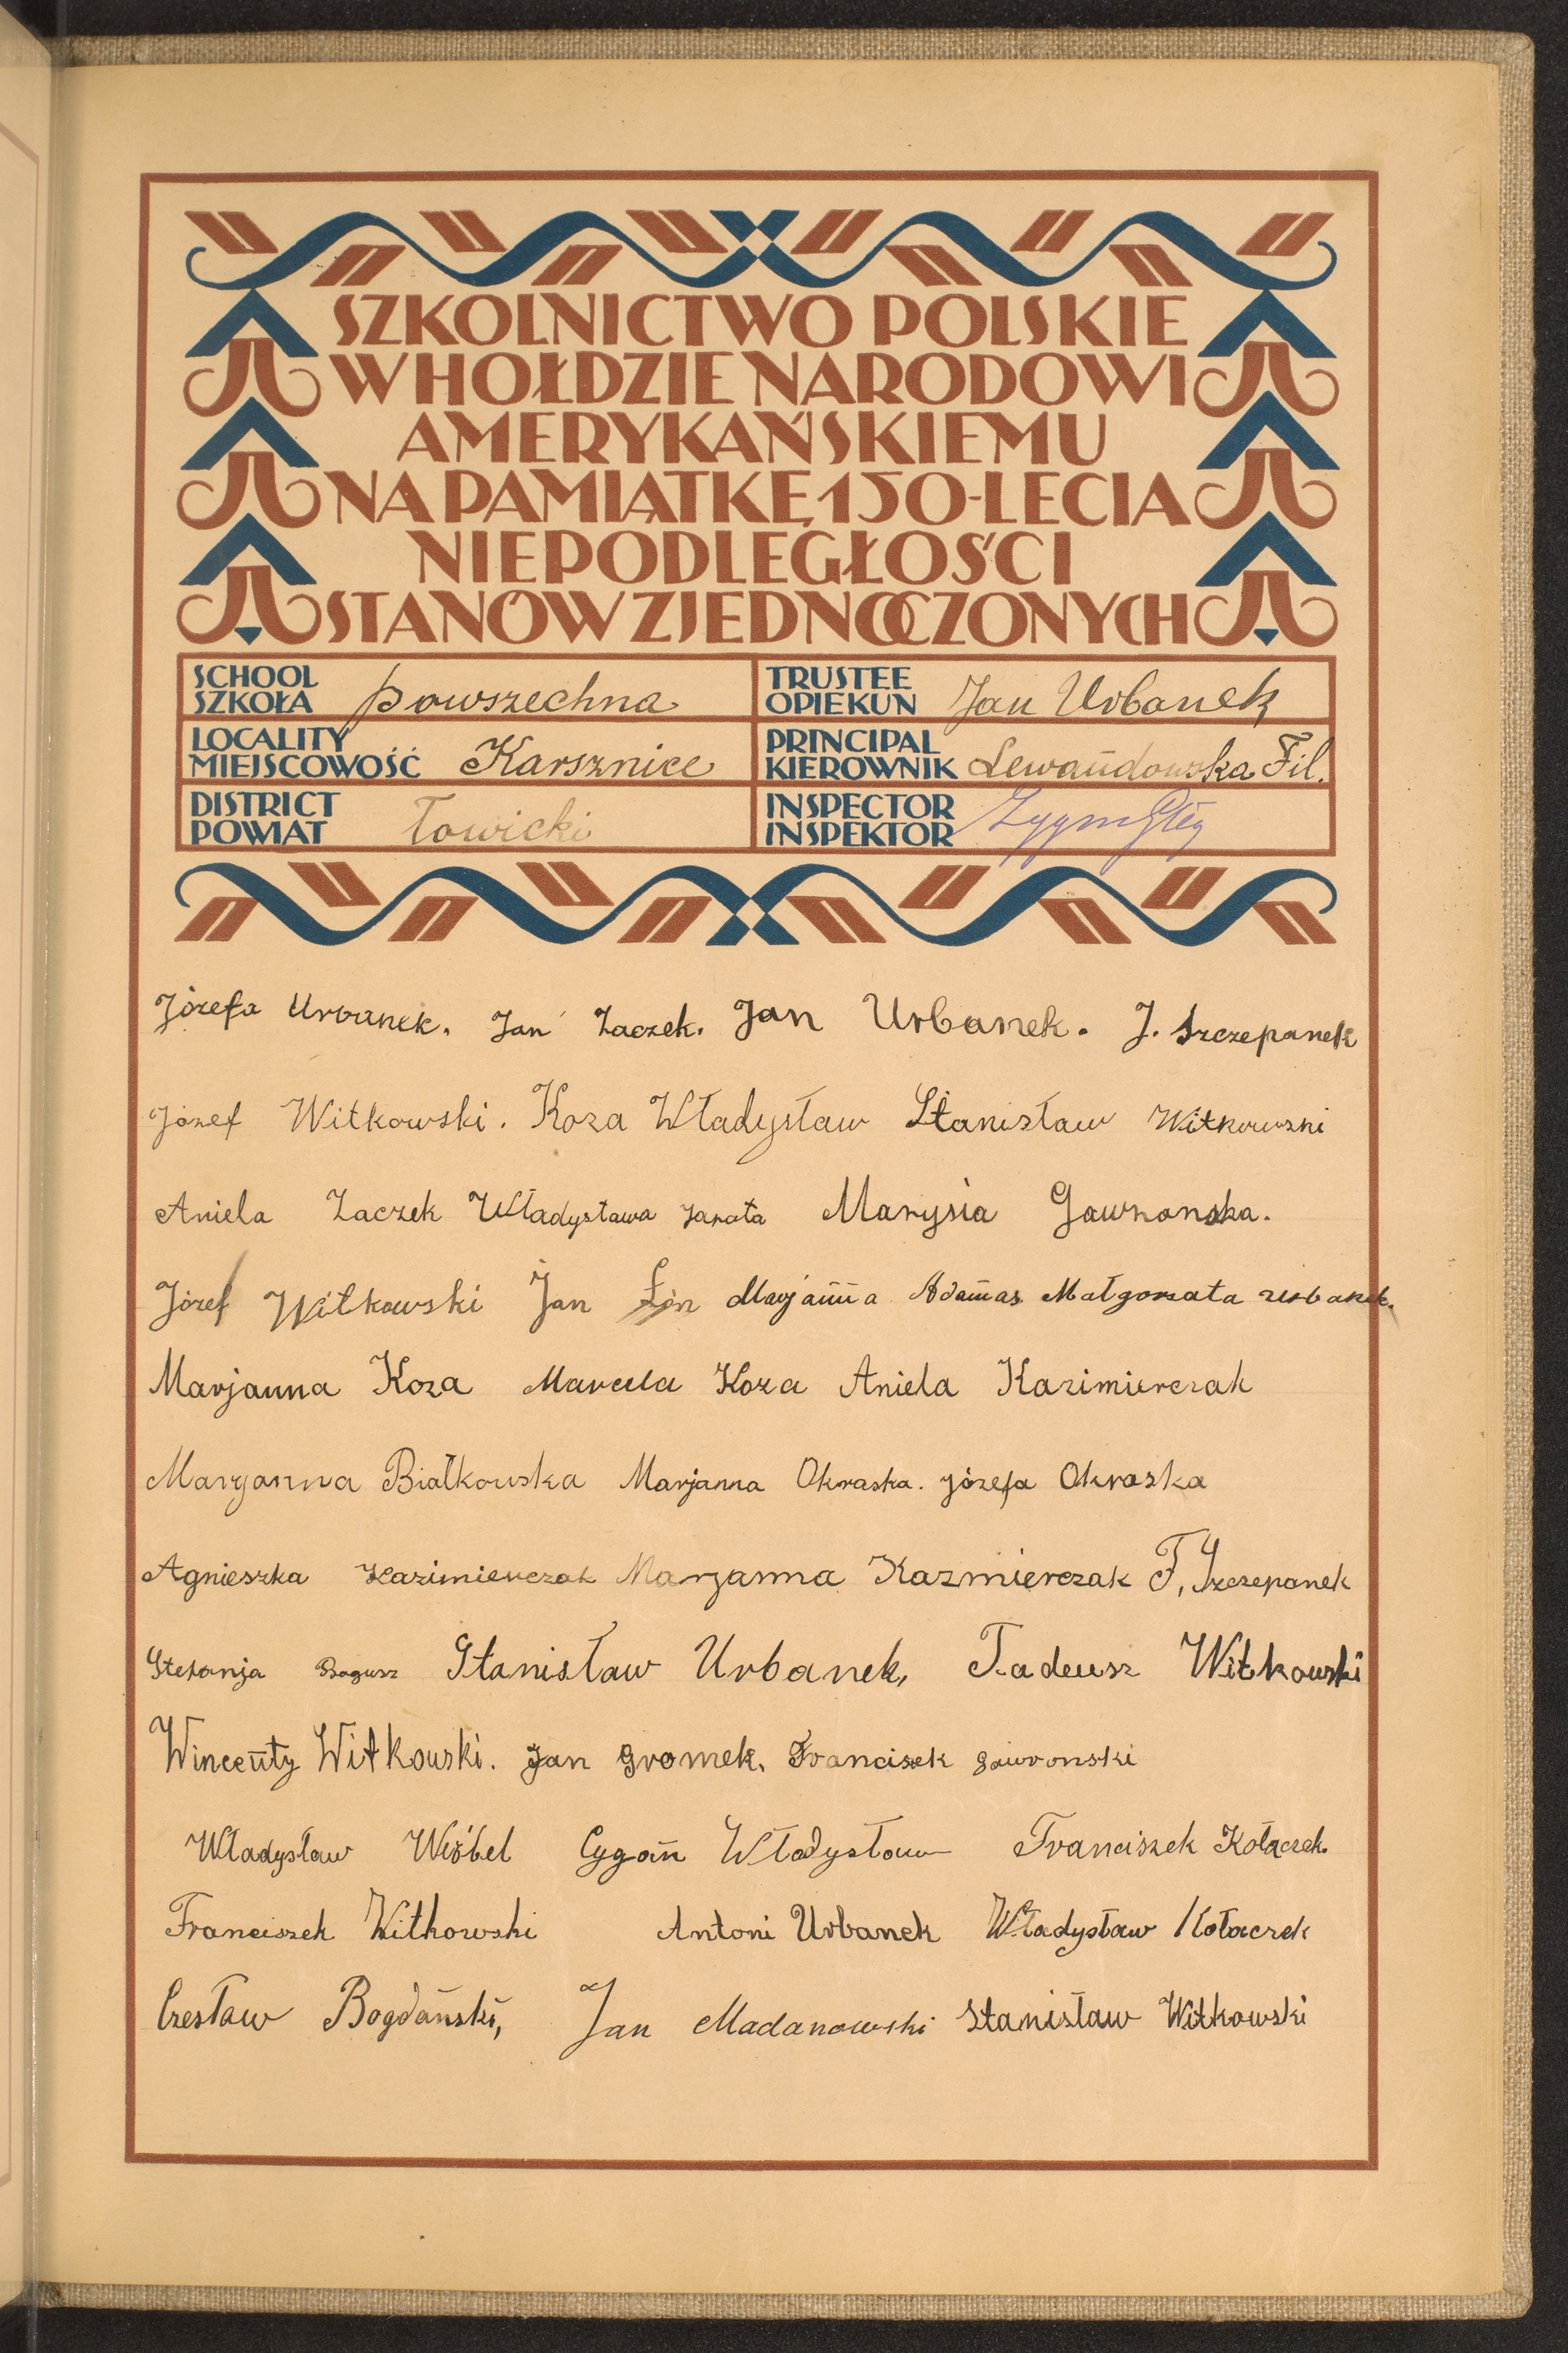 SZKOLNICTWO POLSKIE
W HOŁDZIE NARODOWI
AMERYKAŃSKIEMU
NA PAMIĄTKĘ 150-LECIA
NIEPODLEGŁOŚCI
STANÓW ZJEDNOCZONYCH
SCHOOL
SZKOŁA powszechna
TRUSTEE
OPIEKUN Jan Urbanek
LOCALITY
MIEJSCOWOŚĆ Karsznice
PRINCIPAL
KIEROWNIK Lewandowska Fil.
DISTRICT
POWIAT Łowicki
INSPECTOR
INSPEKTOR
Józefa Urbanek. Jan Zaczek. Jan Urbanek. J. Szczepanek
Józef Witkowski. Koza Władysław Stanisław Witkowski
Aniela Zaczek Władysława Marysia Gawronska.
Józef Witkowski Jan Marjanna Adamas Małgorzata Urbanek.
Marjanna Koza Marcela Koza Aniela Kazimierczak
Maryanna Białkowska Marjanna Okraska. Józefa Okraska
Agnieszka Kazimierczak Maryanna Kazmierczak F. Szczepanek
Stefanja Bogusz Stanisław Urbanek, Tadeusz Witkowski
Wincenty Witkowski. Jan Gromek. Francisek Gawronski
Władysław Wróbel Cygan Władysław Franciszek Kołaczek.
Franciszek Witkowski Antoni Urbanek Władysław Kołaczek
Czesław Bogdański, Jan Madanowski Stanisław Witkowski